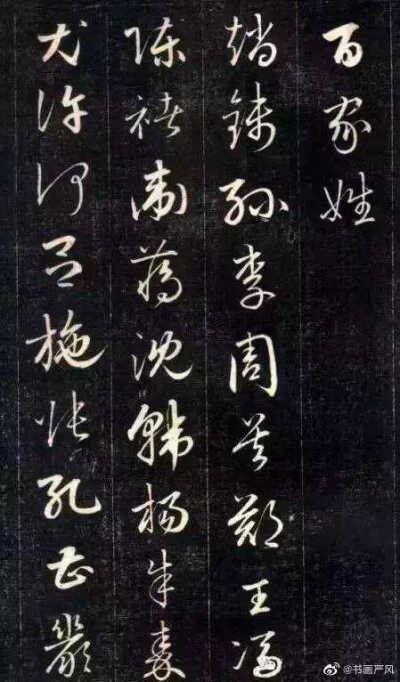 百家姓
趙錢孫李周吴鄭王馮
陳褚衛蔣沈韓楊朱秦
尤許何吕施張孔曹嚴
@书画严风